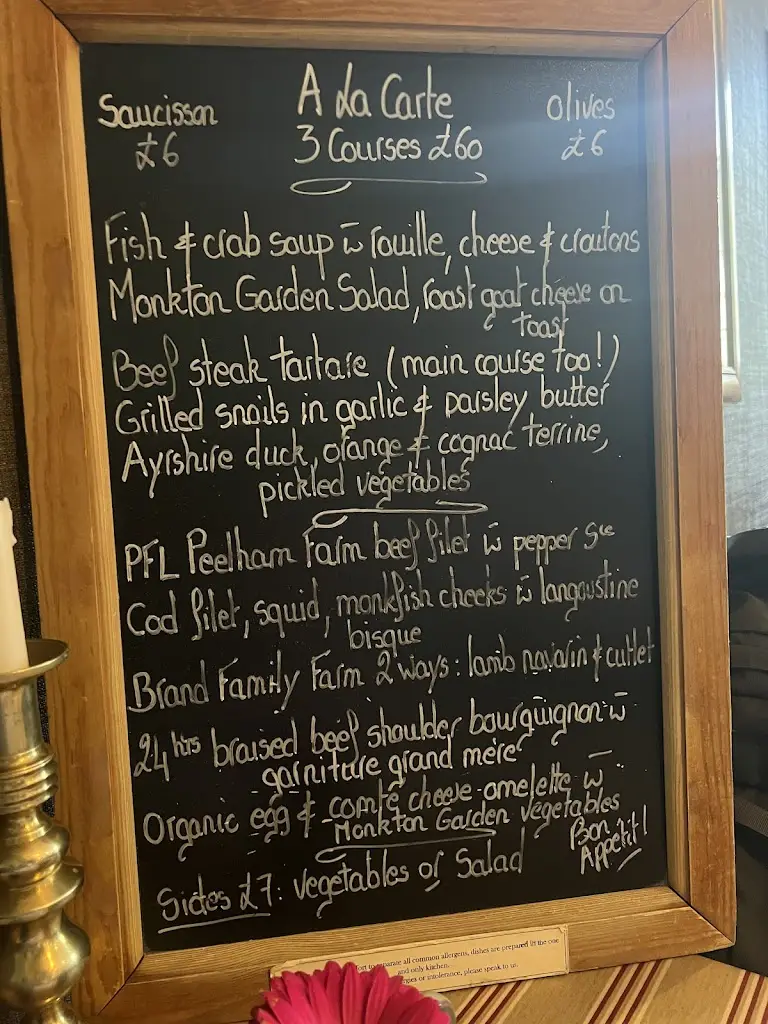 A La Carte
Saucisson
£6
3 Courses £60
Olives
£6
Fish & crab soup w̄ rouille, cheese & croutons
Monkton Garden Salad, roast goat cheese on
toast
Beef steak tartare (main course too!)
Grilled snails in garlic & parsley butter
Ayrshire duck, orange & cognac terrine,
pickled vegetables
PFL Peelham Farm beef filet w̄ pepper Sce
Cod filet, squid, monkfish cheeks w̄ langoustine
bisque
Brand Family Farm 2 ways: lamb navarin & cutlet
24hrs braised beef shoulder bourguignon w̄
garniture grand mère
Organic egg & comté cheese omelette w̄
Monkton Garden vegetables
Bon
Appétit!
Sides £7: vegetables or Salad
to separate all common allergens, dishes are prepared in the one
and only kitchen.
or intolerance, please speak to us.